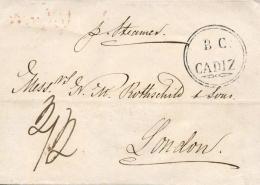 p. Steamer.
B.C.
CADIZ
Mess.rs N. M. Rothschild & Sons.
2/2
London.